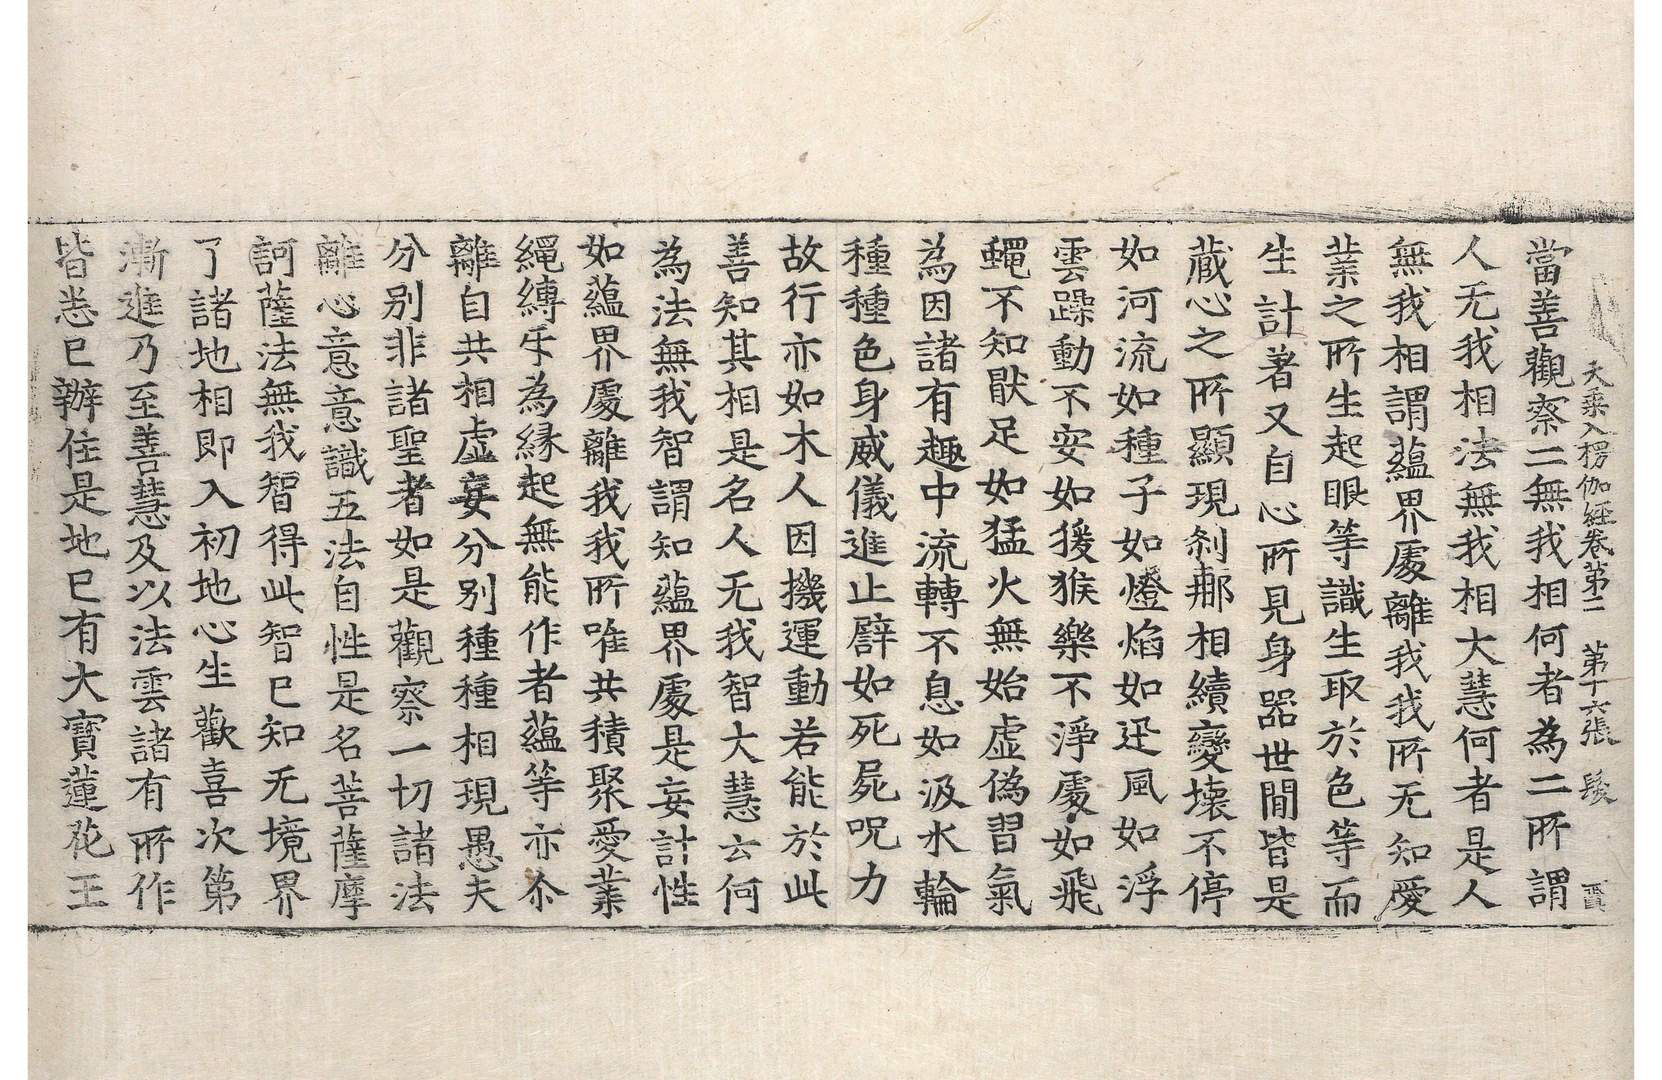 大乘入楞伽經卷第二 第十六張 髮
當善觀察二無我相何者為二所謂
人无我相法無我相大慧何者是人
無我相謂蘊界處離我我所无知愛
業之所生起眼等識生取於色等而
生計著又自心所見身器世間皆是
藏心之所顯現刹那相續變壞不停
如河流如種子如燈焰如迅風如浮
雲躁動不安如猨猴樂不淨處如飛
蠅不知猒足如猛火無始虛偽習氣
為因諸有趣中流轉不息如汲水輪
種種色身威儀進止譬如死屍呪力
故行亦如木人因機運動若能於此
善知其相是名人无我智大慧云何
為法無我智謂知蘊界處是妄計性
如蘊界處離我我所唯共積聚愛業
繩縛㸦為緣起無能作者蘊等亦尒
離自共相虛妄分別種種相現愚夫
分別非諸聖者如是觀察一切諸法
離心意意識五法自性是名菩薩摩
訶薩法無我智得此智已知无境界
了諸地相即入初地心生歡喜次第
漸進乃至善慧及以法雲諸有所作
皆悉已辦住是地已有大寶蓮花王